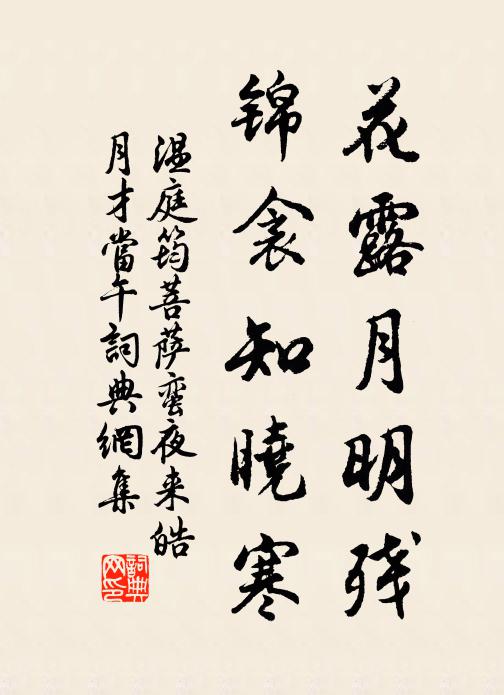 花露月明残
锦衾知曉寒
温庭筠菩萨蛮夜来皓
月才當午詞典網集
詞典网印